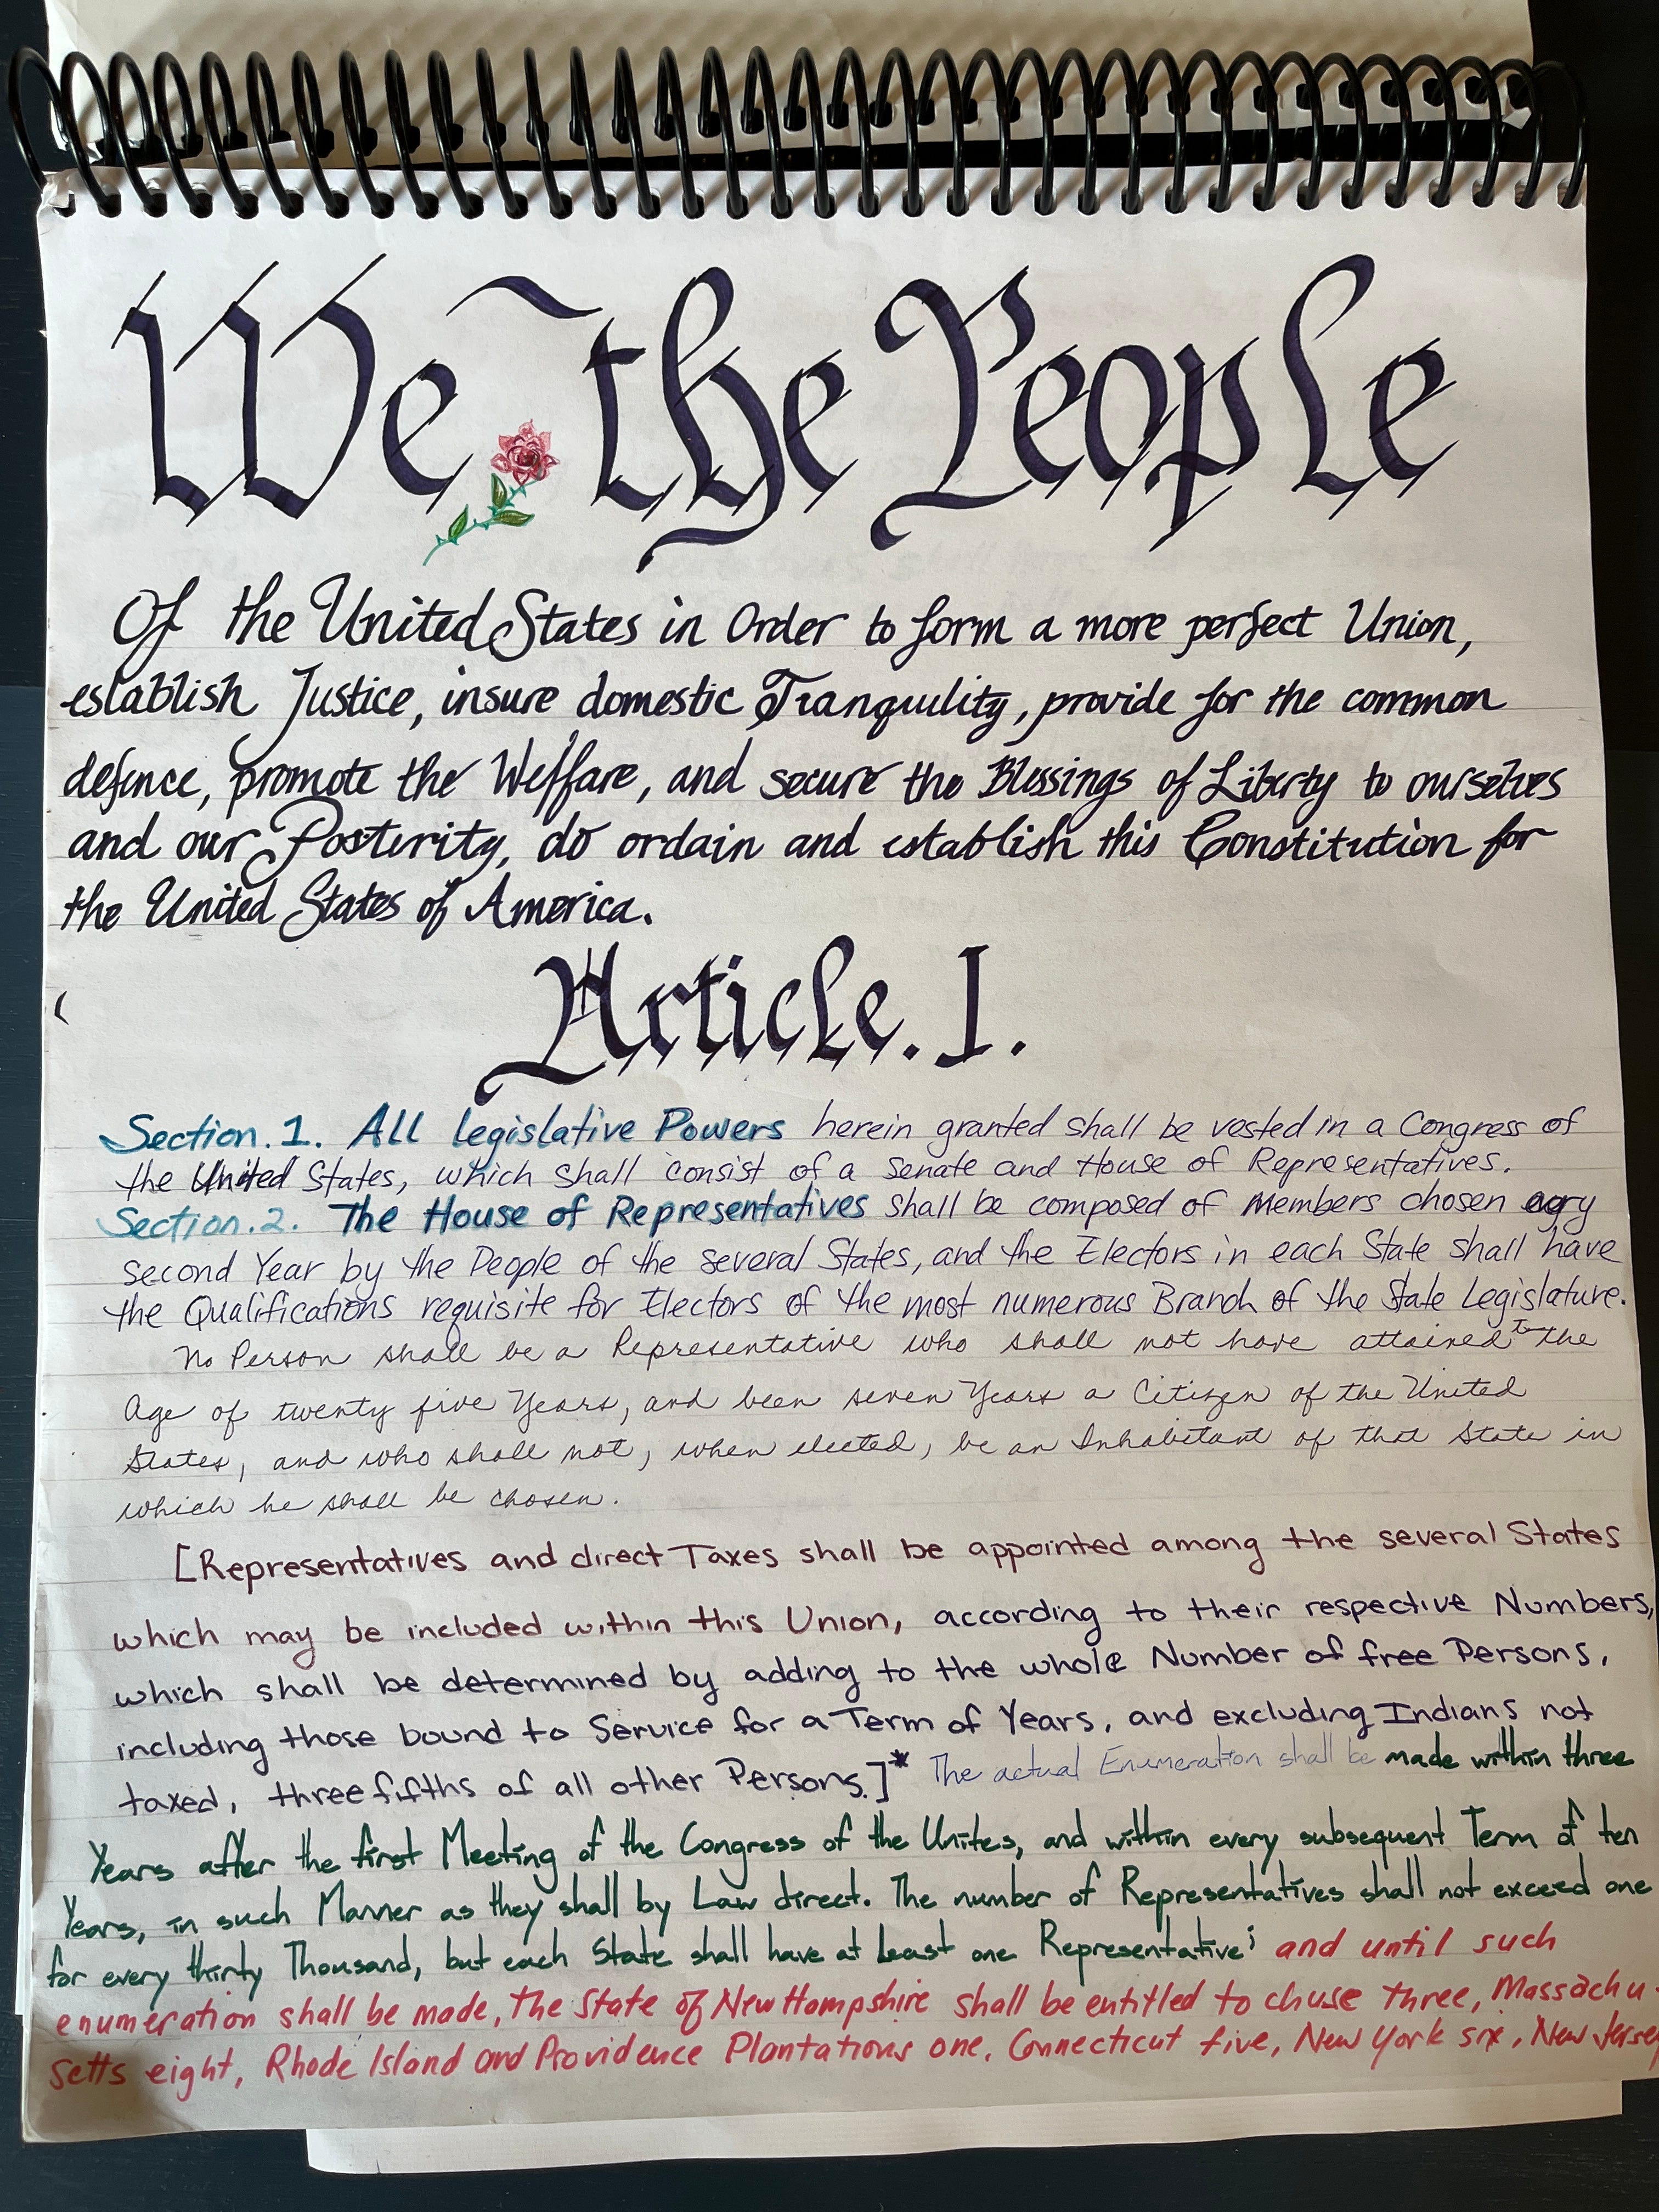 We the People
Of the United States in Order to form a more perfect Union,
establish Justice, insure domestic Tranquility, provide for the common
defence, promote the Welfare, and secure the Blessings of Liberty to ourselves
and our Posterity, do ordain and establish this Constitution for
the United States of America.
Article. I.
Section. 1. All legislative Powers herein granted shall be vested in a Congress of
the United States, which shall consist of a Senate and House of Representatives.
Section. 2. The House of Representatives shall be composed of Members chosen
second Year by the People of the several States, and the Electors in each State shall have
the Qualifications requisite for Electors of the most numerous Branch of the State Legislature.
No Person shall be a Representative who shall not have attained to the
Age of twenty five Years, and been seven Years a Citizen of the United
States, and who shall not, when elected, be an Inhabitant of that State in
which he shall be chosen.
[Representatives and direct Taxes shall be appointed among the several States
which may be included within this Union, according to their respective Numbers,
which shall be determined by adding to the whole Number of free Persons,
including those bound to Service for a Term of Years, and excluding Indians not
taxed, three fifths of all other Persons.]* The actual Enumeration shall be made within three
Years after the first Meeting of the Congress of the Unites, and within every subsequent Term of ten
Years, in such Manner as they shall by Law direct. The number of Representatives shall not exceed one
for every thirty Thousand, but each State shall have at Least one Representative; and until such
enumeration shall be made, the State of New Hampshire shall be entitled to chuse three, Massachu-
setts eight, Rhode Island and Providence Plantations one, Connecticut five, New York six, New Jersey